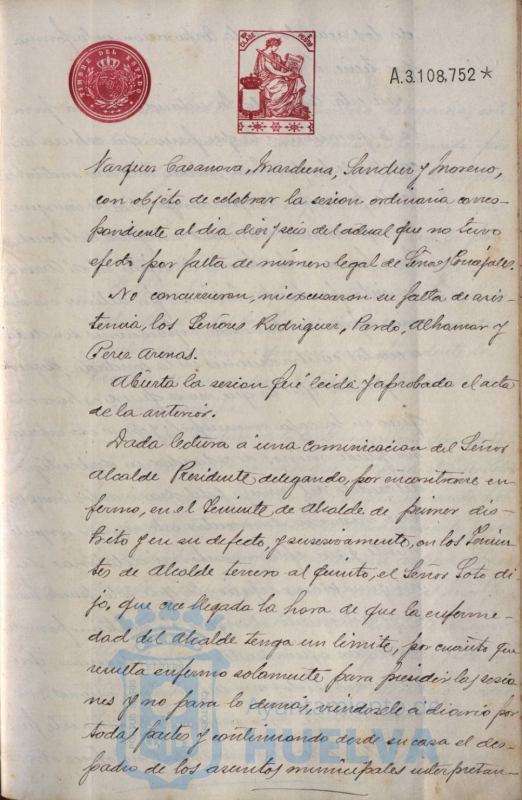 TIMBRE DEL ESTADO
A.3.108,752*
Vazquez Casanova, Marchena, Sanchez y Moreno,
con objeto de celebrar la sesion ordinaria corres-
pondiente al dia diez y seis del actual que no tuvo
efecto por falta de número legal de Señores Concejales.
No concurrieron, ni excusaron su falta de asis-
tencia, los Señores Rodriguez, Pardo, Alhamar y
Perez Arenas.
Abierta la sesion fué leida y aprobada el acta
de la anterior.
Dada lectura á una comunicacion del Señor
Alcalde Presidente delegando, por encontrarse en-
fermo, en el Teniente de Alcalde de primer dis-
trito y en su defecto, y sucesivamente, en los Tenien-
tes de Alcalde tercero al quinto, el Señor Soto di-
jo, que cree llegada la hora de que la enferme-
dad del Alcalde tenga un limite, por cuanto que
resulta enfermo solamente para presidir las sesio-
nes y no para lo demás, viendosele á diario por
todas partes y continuando desde su casa el des-
pacho de los asuntos municipales interpretan-
HUELVA